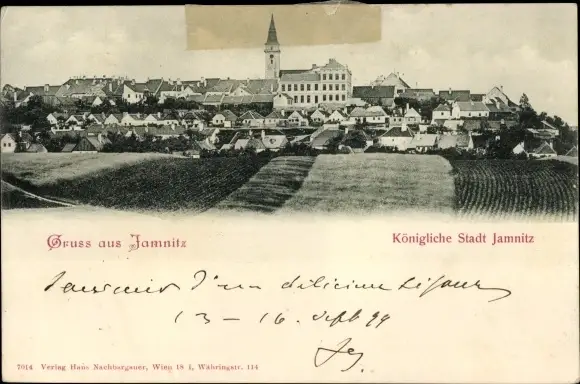 Gruss aus Jamnitz
Königliche Stadt Jamnitz
Souvenir d'un délicieux séjour
13 – 16. Sept 99
7014 Verlag Hans Nachbargauer, Wien 18 1, Währingstr. 114